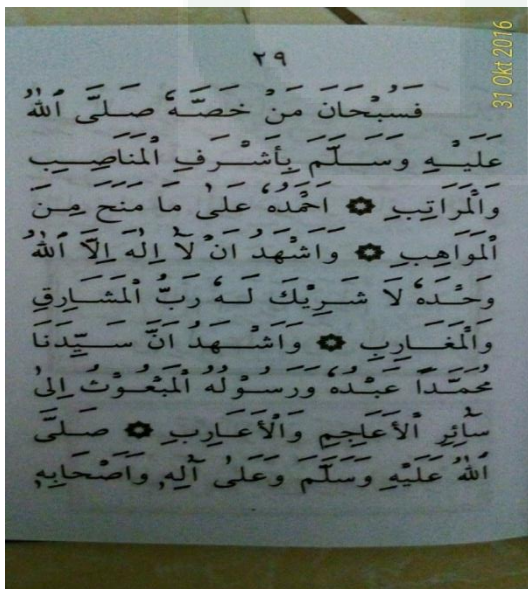 ٢٩
فَسُبْحَانَ مَنْ خَصَّهُ صَلَّى ٱللهُ
عَلَيْهِ وَسَلَّمَ بِأَشْرَفِ ٱلْمَنَاصِبِ
وَٱلْمَرَاتِبِ ۞ اَحْمَدُهُ عَلَى مَا مَنَحَ مِنَ
ٱلْمَوَاهِبِ ۞ وَاَشْهَدُ اَنْ لَآ اِلٰهَ اِلَّا ٱللهُ
وَحْدَهُ لَا شَرِيْكَ لَهُ رَبُّ ٱلْمَشَارِقِ
وَٱلْمَغَارِبِ ۞ وَاَشْهَدُ اَنَّ سَيِّدَنَا
مُحَمَّدًا عَبْدُهُ وَرَسُوْلُهُ ٱلْمَبْعُوْثُ اِلَى
سَآئِرِ ٱلْأَعَاجِمِ وَٱلْأَعَارِبِ ۞ صَلَّى
ٱللهُ عَلَيْهِ وَسَلَّمَ وَعَلَى آلِهِ وَاَصْحَابِهِ
31 Okt 2016